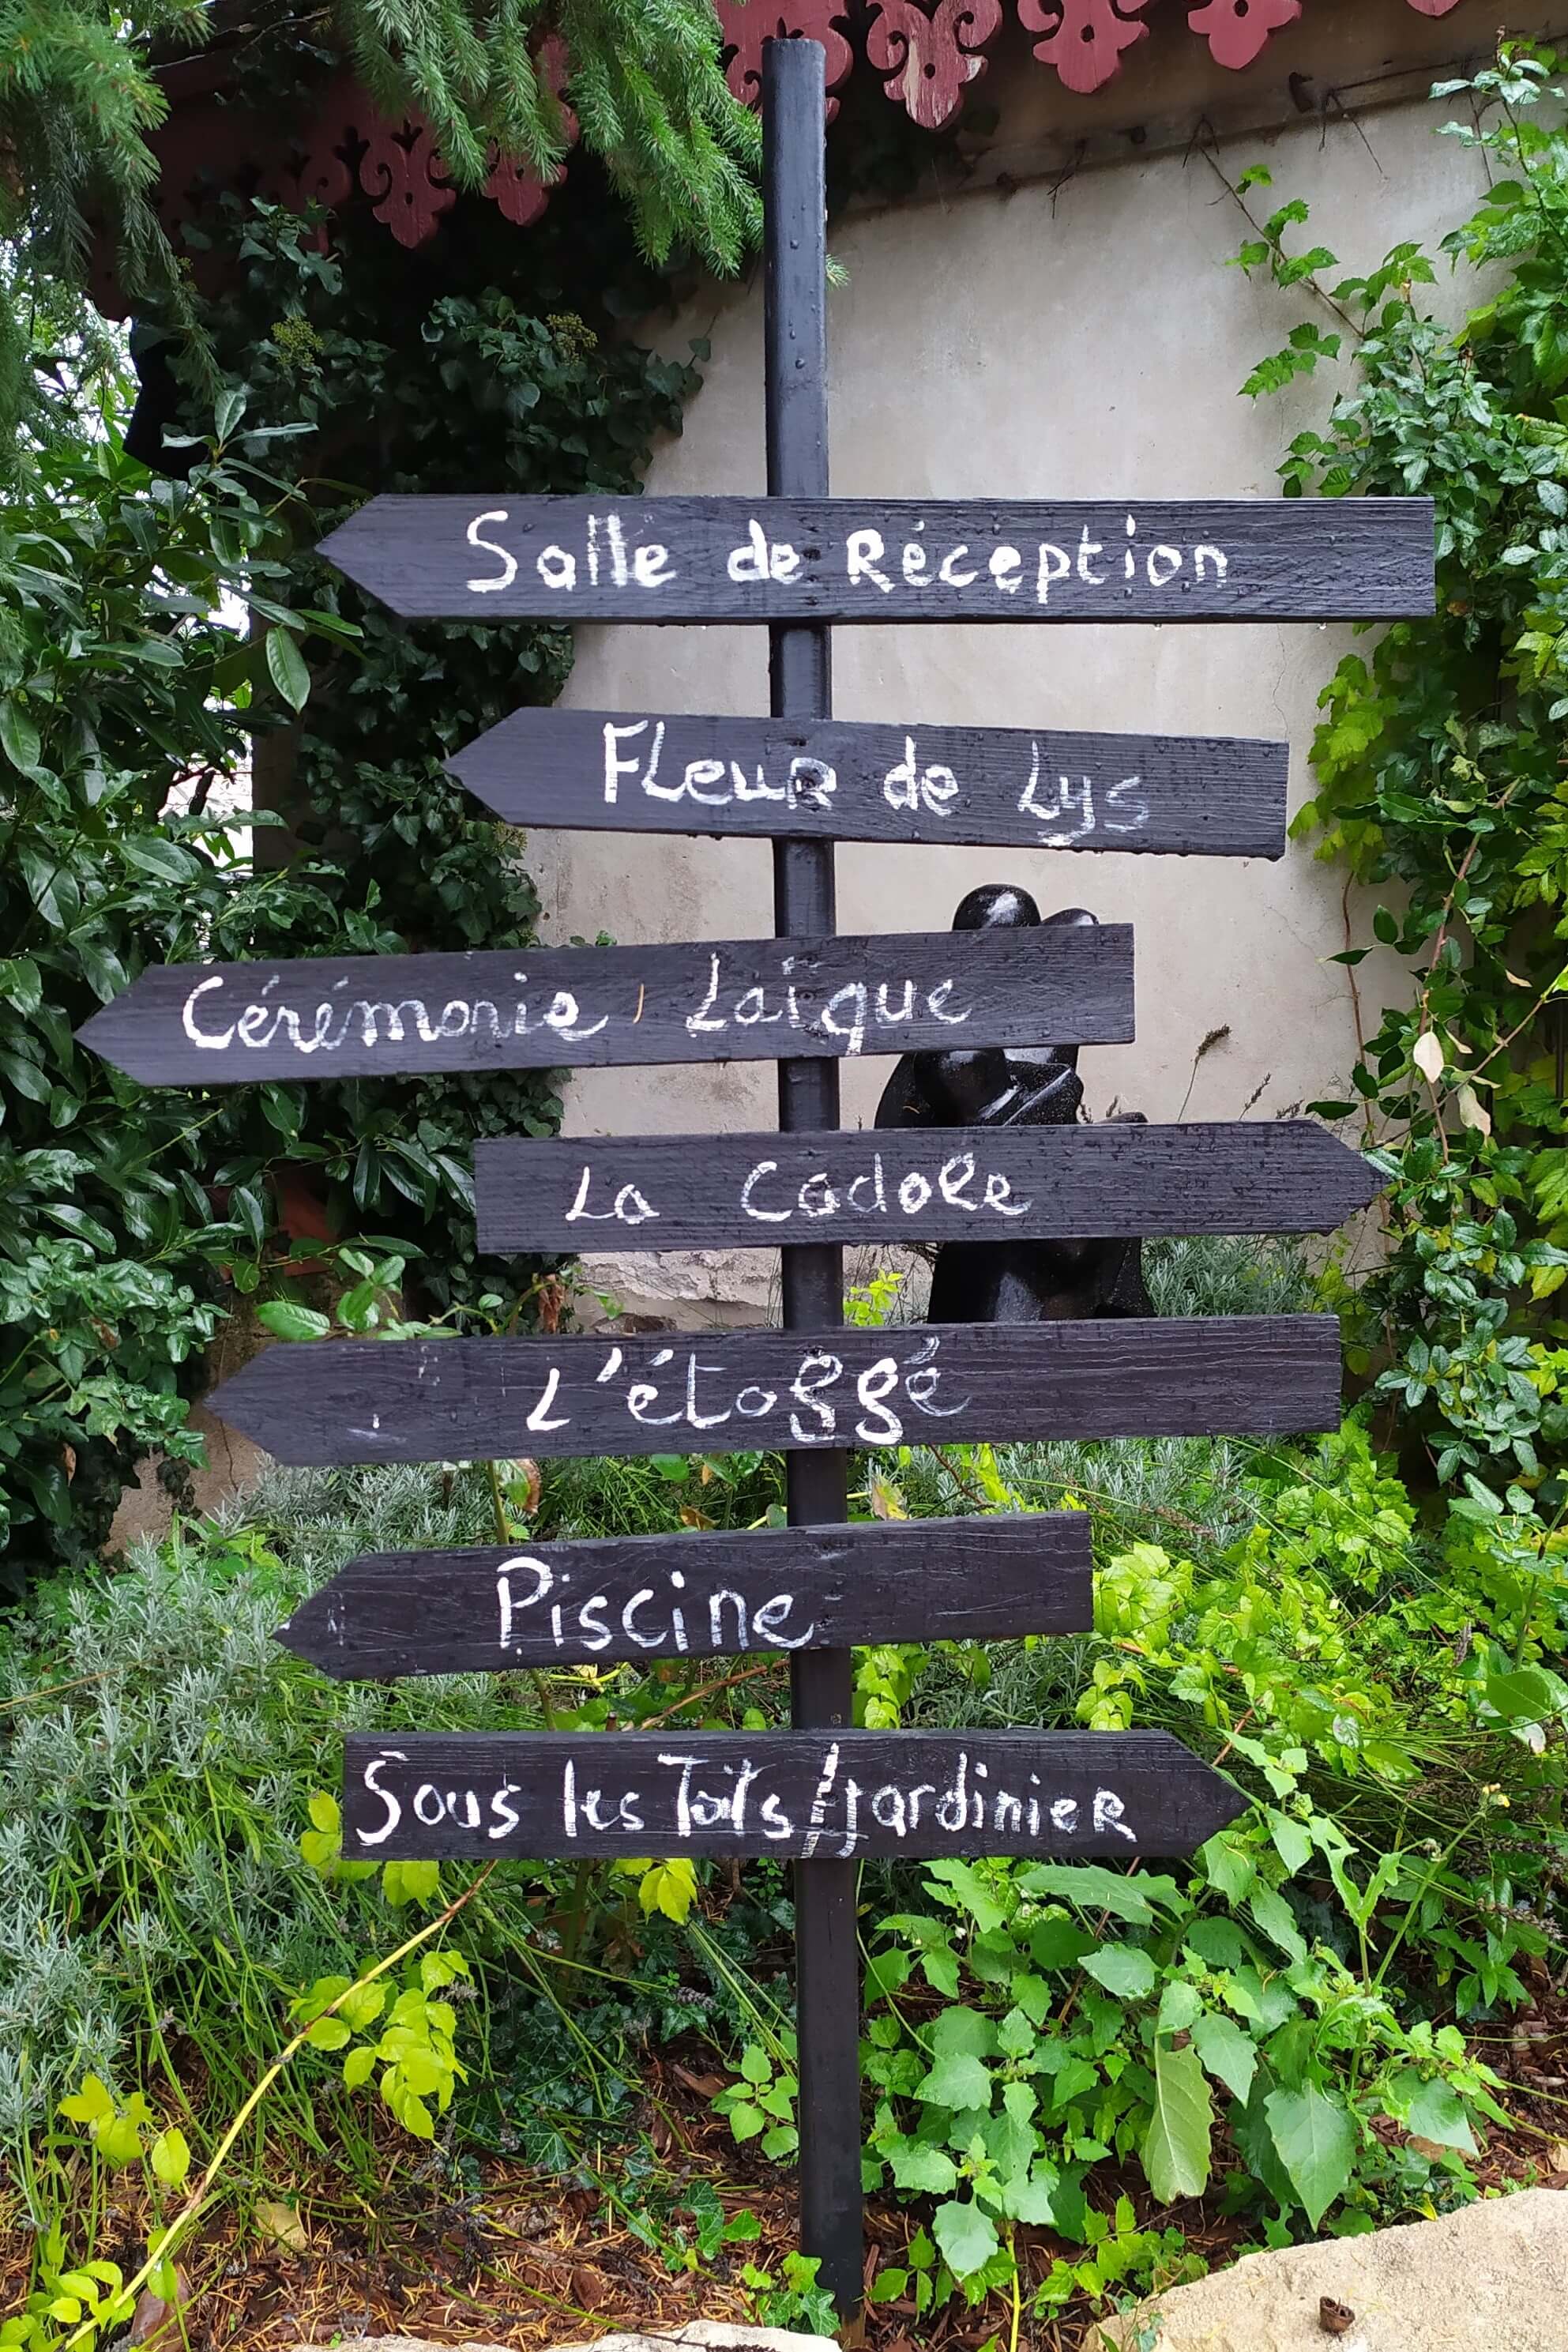 Salle de Réception
Fleur de Lys
Cérémonie Laïque
La Cadole
L'étoggé
Piscine
Sous les Toits/jardinier